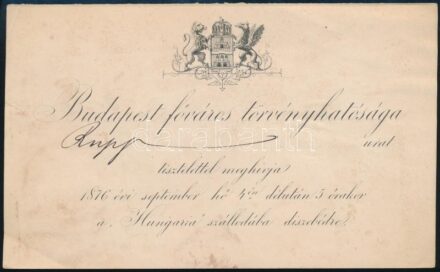 Budapest főváros törvényhatósága
Rupp urat
tisztelettel meghivja
1876 évi september hó 4én délután 5 órakor
a „Hungaria” szállodába diszebédre.
darabanth